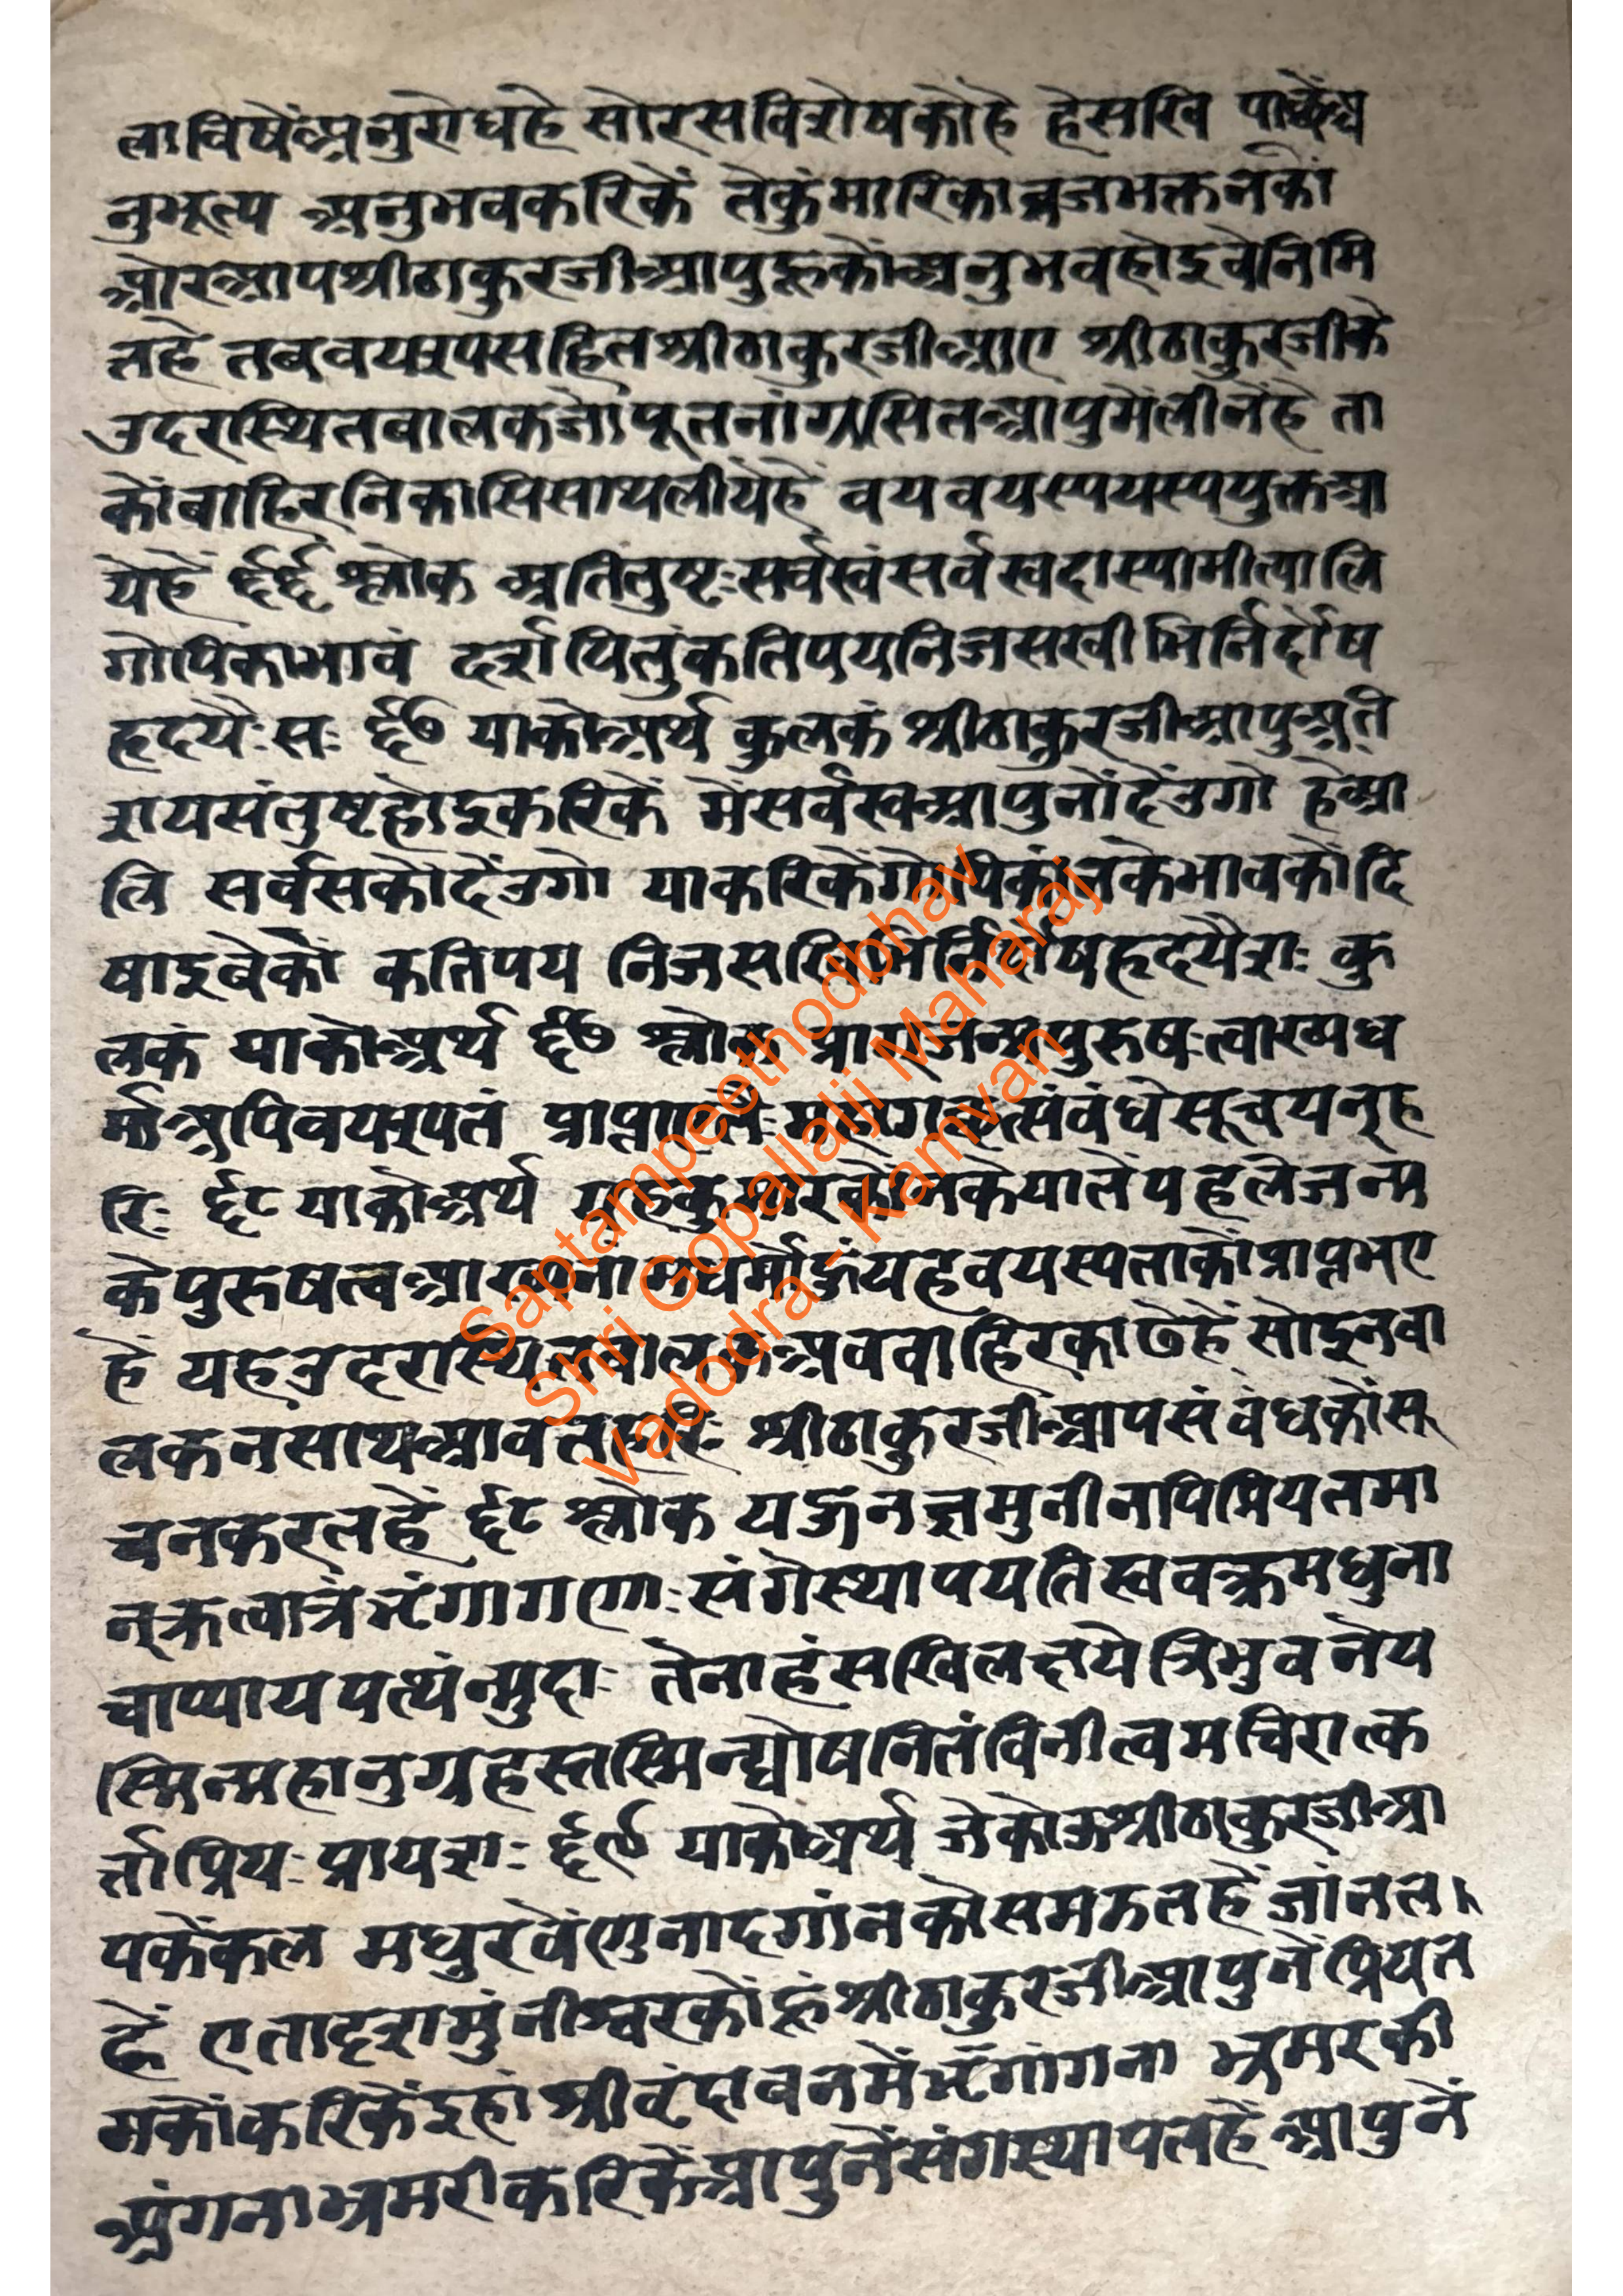 लाविषेंअनुरोधहे सोरसविशेषकोहे हेसखि पाछेंअ
नुभूत्य अनुभवकरिकें तेकुंमारिकाव्रजभक्तनकों
ओरआपश्रीठाकुरजीआपुहूकोंअनुभवहोइवेनिमि
तहे तबवयस्यसहितश्रीठाकुरजीआए श्रीठाकुरजीके
उदरास्थितबालकजोपूतनांग्रसितआपुमेंलीनेंहे ता
कोंबाहिरनिकासिसाथलीयेहें वयवयस्पयस्पयुक्तआ
येहें ६६ श्लोक अतितुष्टःसर्वस्वंसर्वस्वदास्यामीत्यालि
गोपिकाभावं दर्शयितुंकतिपयनिजसखीभिर्निर्दोष
हृदयैःसः ६७ याकोअर्थ कुलकं श्रीठाकुरजीआपुअति
शयसंतुष्टहोइकरिकें मेंसर्वस्वआपुनोंदेंउगो हेआ
लि सर्वसकोदेंउगो याकरिकेंगोपिकांनकेभावकोंदि
षाइवेकों कतिपय निजसखिभिर्निर्दोषहृदयैशः कु
लकं याकोअर्थ ६७ श्लोक प्रागजन्मपुरुषःत्वाख्यध
र्माअपिवयस्यतं
रिः ६८ याकोअर्थ
केपुरुषत्वआख्यनामधर्मोहूंयहवयस्पताकोंप्राप्तभए
हें यहउदरास्थितबालकअबबाहिरकाढेहें सोइनबा
लकनसाथआवतहरिः श्रीठाकुरजीआपसंबंधकोंसू
चनकरतहें ६८ श्लोक यत्कूजनज्ञमुनीनपिप्रियतमा
न्कृत्वात्रभृंगागणाःसंगेस्थापयतिस्ववक्त्रमधुना
चाप्यायपत्यंन्मुदाः तेनाहंसखिलक्षये त्रिभुवनेय
स्मिन्महानुग्रहस्तस्मिन्घोषनितंविनीत्वमचिरात्क
र्ताप्रियःप्रायशः ६९ याकोअर्थ जेकोऊश्रीठाकुरजीआ
पकेंकल मधुरवेंणुनादगांनकोसमझतहें जांनत
हें एतादृशमुंनीश्वरकोंहूंश्रीठाकुरजीआपुनेंप्रियत
मकोंकरिकेंइहांश्रीवृंदावनमेंभृंगांगना भ्रमरकी
अंगनाभ्रमरीकरिकेंआपुनेंसंगस्थापतहें आपुनें
Saptampeethodbhav
Shri Gopallalji Maharaj
Vadodra - Kamvan